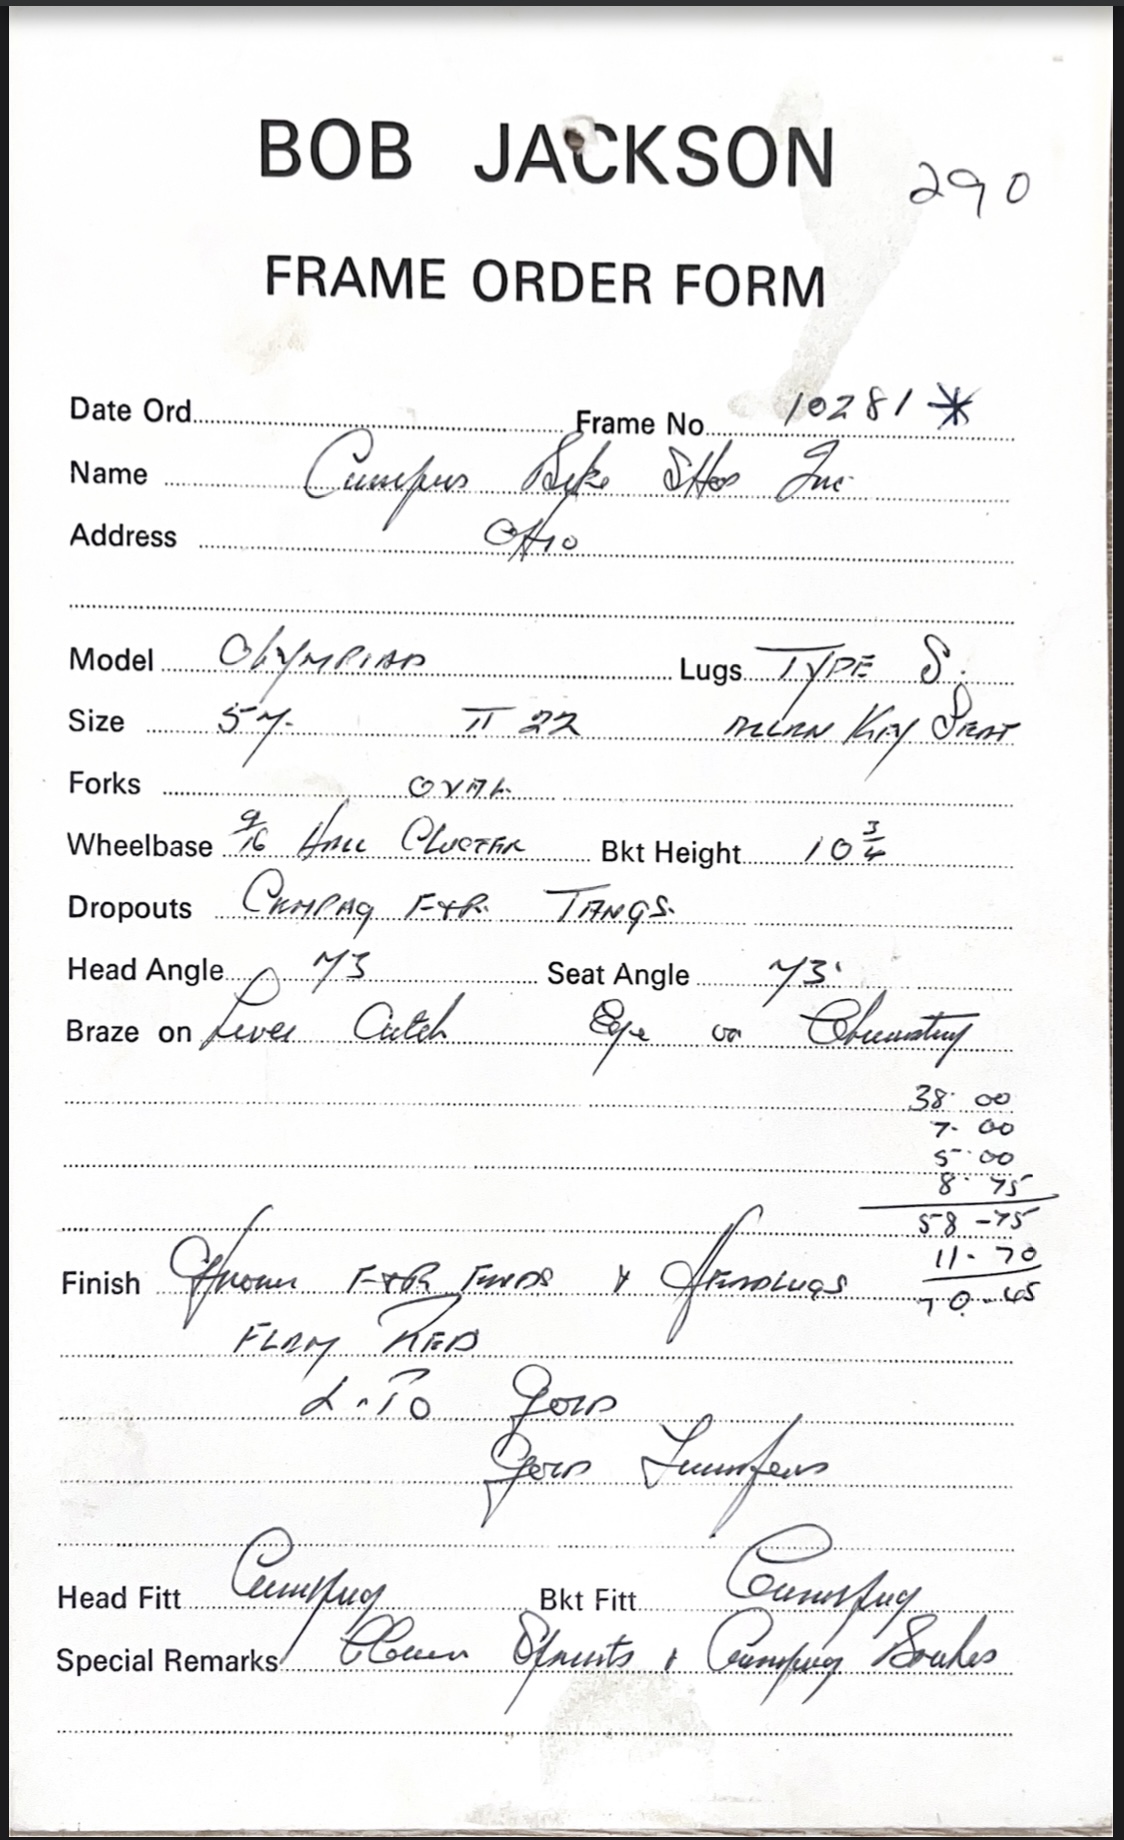 BOB JACKSON
290
FRAME ORDER FORM
Date Ord. Frame No. 10281 *
Name Campus Bike Shop Inc.
Address OHIO
Model OLYMPIAD Lugs TYPE S.
Size 57. TT 22 ALLAN KEY SEAT
Forks OVAL
Wheelbase 9/16 HALL CLUSTER Bkt Height 10 3/4
Dropouts CAMPAG F+R. TANGS.
Head Angle 73 Seat Angle 73
Braze on Lever Catch Eye on
38.00
7.00
5.00
8.75
58-75
Finish Chrome F+R ENDS & HEADLUGS 11-70
70-45
FLAM RED
L.TO GOLD
GOLD Transfers
Head Fitt Campag Bkt Fitt Campag
Special Remarks Campag Brakes